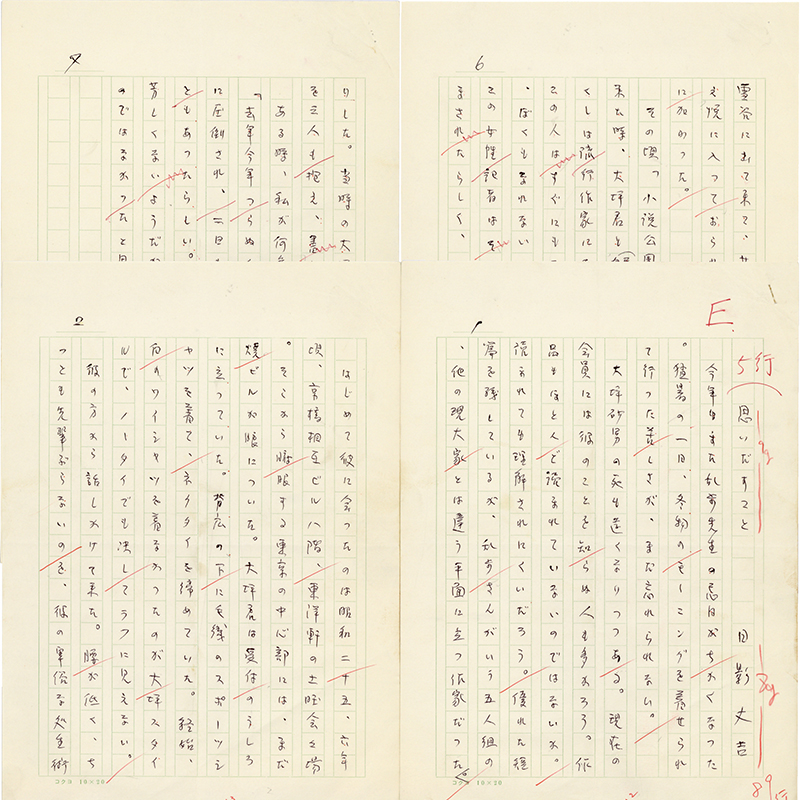 6
におりて来て、
え悦に入っておられ
にかかった。
その頃、小説公園
来た時、大坪君と
くしは流行作家に
この人はすぐにも
、ぼくもなれない
この女性記者はそ
まされたらしく、
りした。当時の大
を三人も抱え、悪
ある時、私が何
「去年今年つらぬく
に圧倒され、一日
ともあったらしい。
芳しくないようだ
のではなかったと
1
E.
5行
思いだすこと 日影丈吉
今年もまた乱歩先生の忌日がちかくなった
。猛暑の一日、冬物のモーニングを着せられ
て行った苦しさが、まだ忘れられない。
大坪砂男の死も遠くなりつつある。現在の
会員には彼のことを知らぬ人も多かろう。作
品もほとんど読まれていないのではないか。
読まれても理解されにくいだろう。優れた短
篇を残しているが、乱歩さんがいう五人組の
、他の現大家とは違う平面に立つ作家だった。
89行
コクヨ 10×20
2
はじめて彼に会ったのは昭和二十五、六年
頃、京橋相互ビル八階、東洋軒の土曜会の場
。そこから服する東京の中心部には、まだ
焼ビルが眼についた。大坪君は受付のうしろ
に立っていた。背広の下に毛織のスポーツシ
ャツを着て、ネクタイを締めていた。終始、
白のワイシャツを着なかったのが大坪スタイ
ルで、ノータイでも決してラフに見えない。
彼の方から話しかけて来た。腰が低く、ち
っとも先輩ぶらないのを、彼の卑俗な処生術
コクヨ 10×20